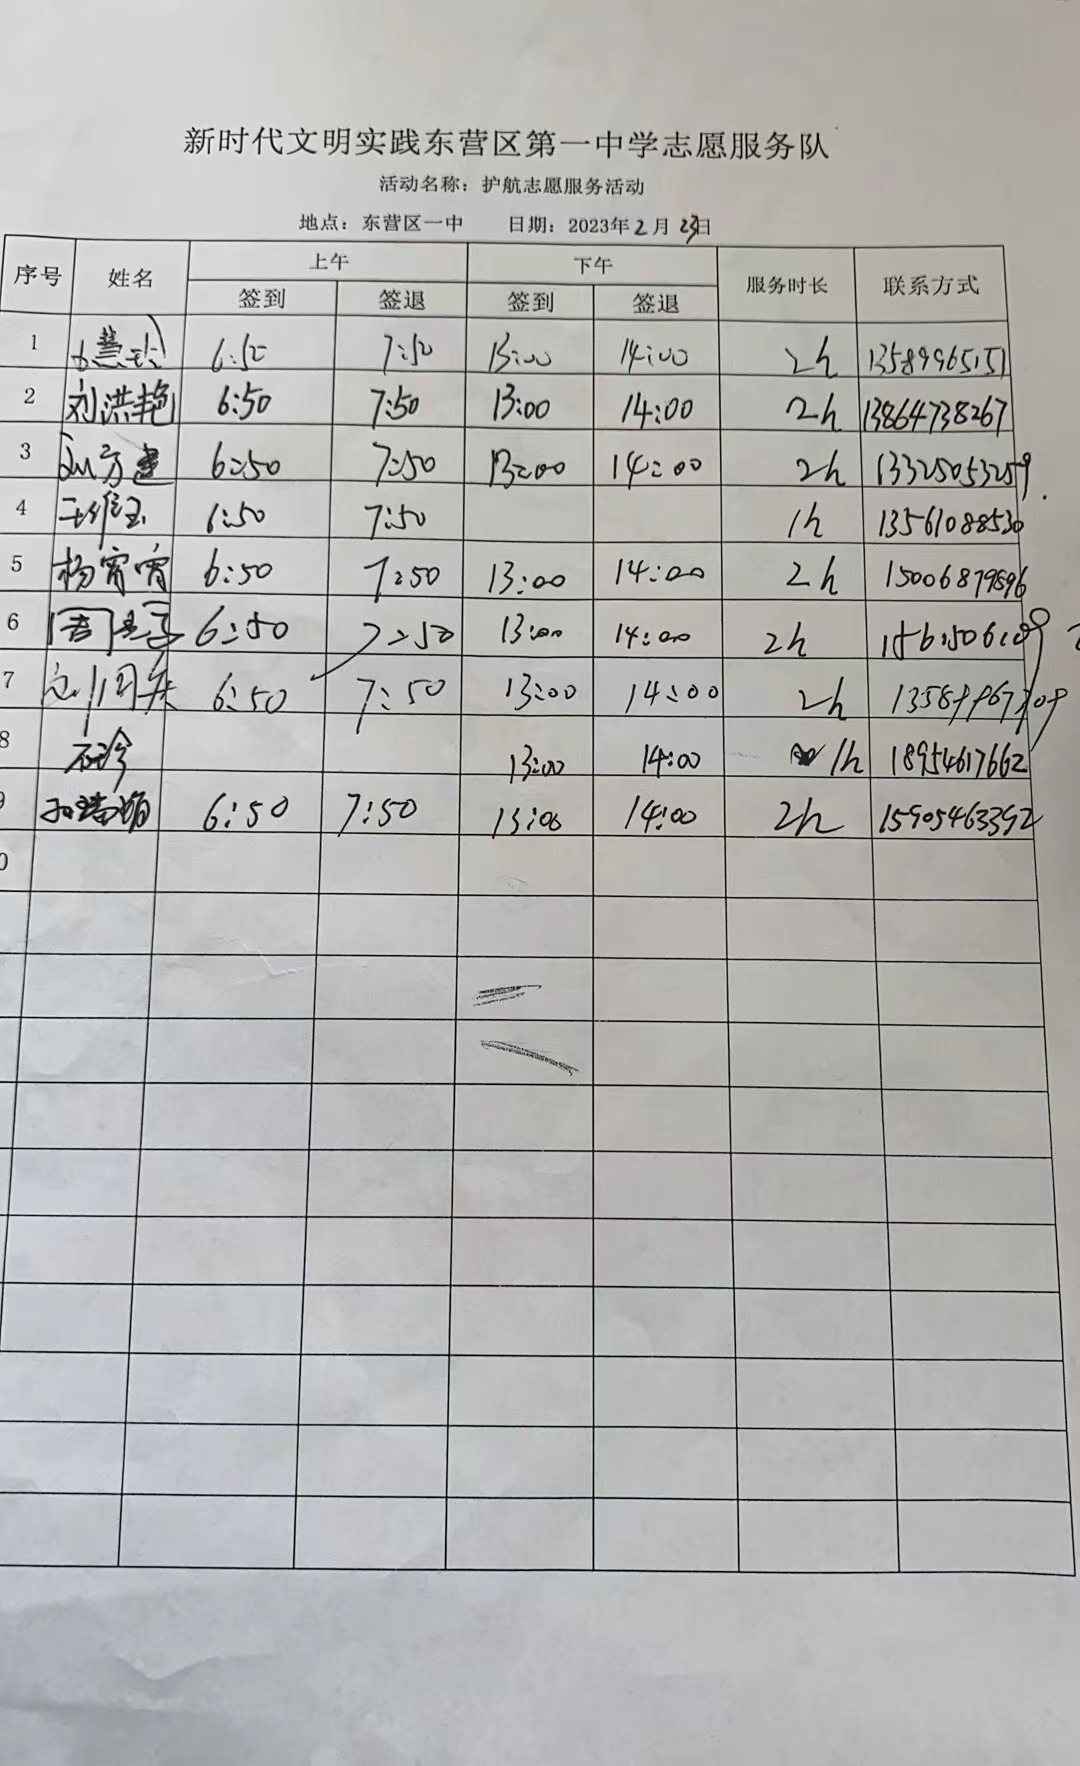 新时代文明实践东营区第一中学志愿服务队
活动名称：护航志愿服务活动
地点：东营区一中 日期：2023年2月23日
序号 姓名 上午 下午 服务时长 联系方式
签到 签退 签到 签退
1 6:50 7:50 13:00 14:00 2h 13589965151
2 刘洪艳 6:50 7:50 13:00 14:00 2h 13864738267
3 6:50 7:50 13:00 14:00 2h 13325053259
4 王维玉 6:50 7:50 1h 13561088530
5 杨宵宵 6:50 7:50 13:00 14:00 2h 15006879896
6 6:50 7:50 13:00 14:00 2h
7 6:50 7:50 13:00 14:00 2h
8 石玲 13:00 14:00 1h 18954617662
9 6:50 7:50 13:00 14:00 2h 15905463392
0